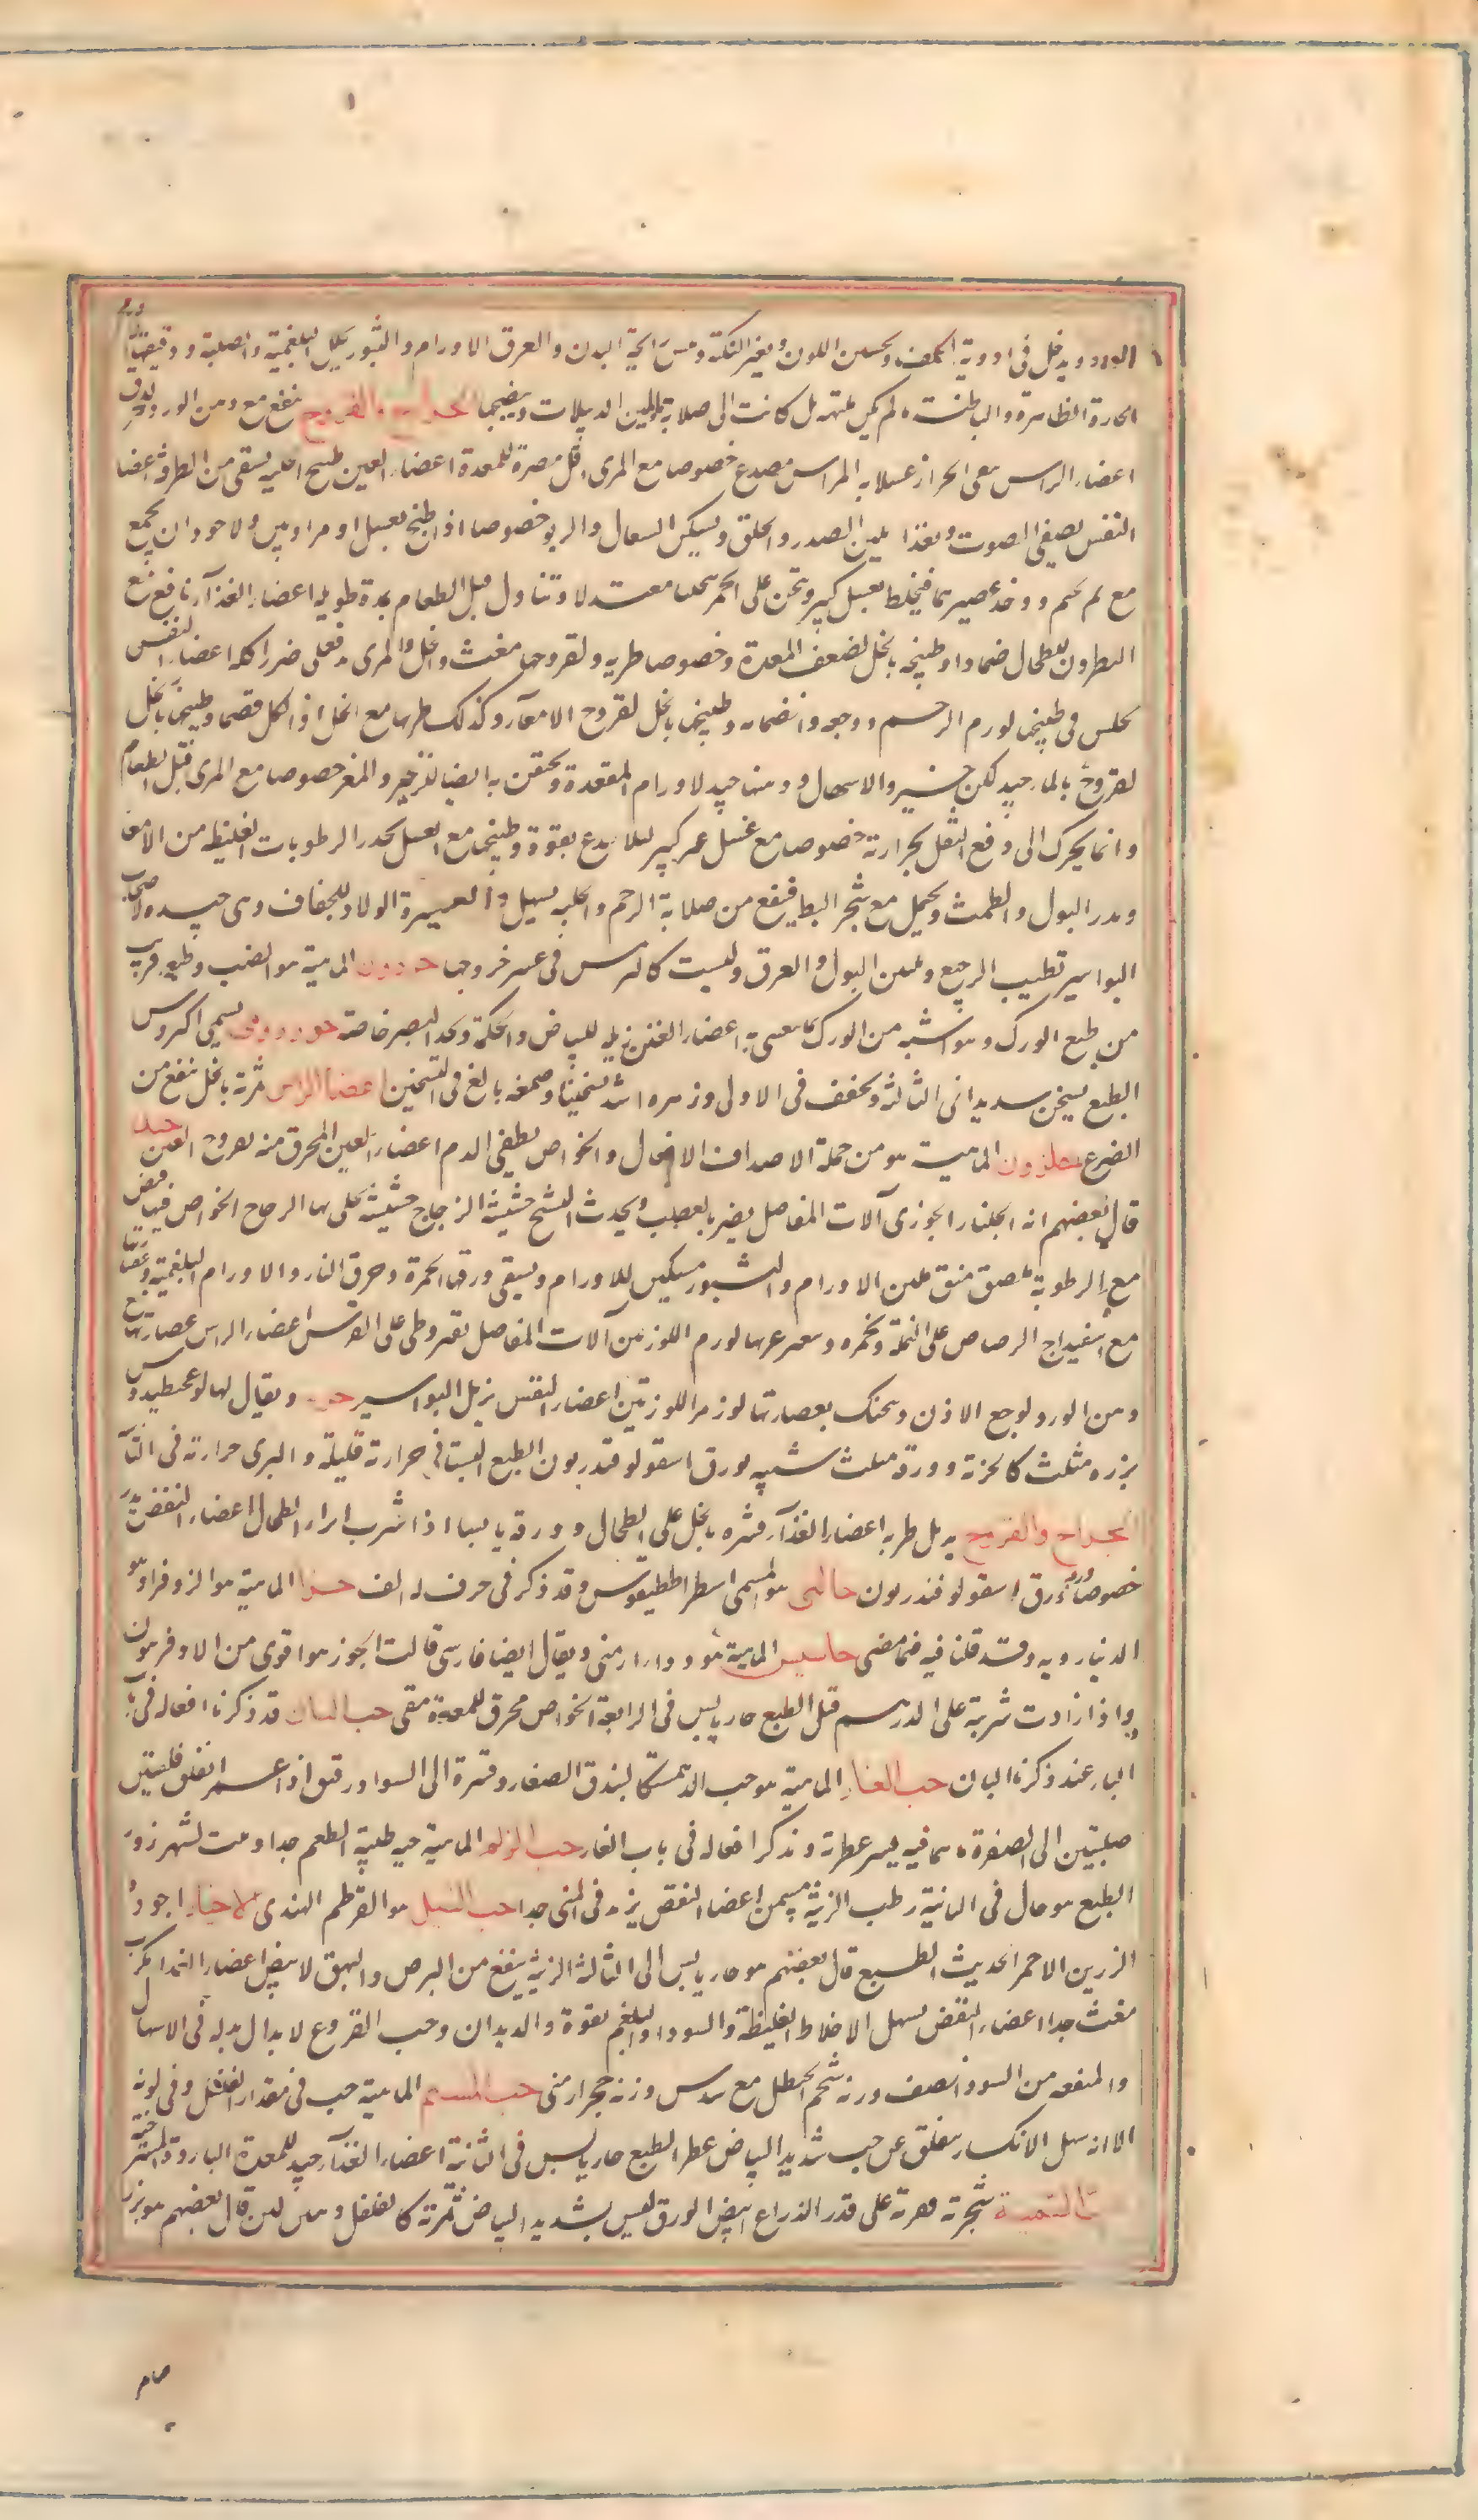 الورد ويدخل فى ادوية الكلف وتحسين اللون وتغير النكهة ونتن رائحة البدن والعرق الاورام والبثور يحلل البلغمية والصلبة ودقيقها
الحارة الظاهرة والباطنة ما لم يكن ملتهبة بل كانت الى صلابة ويلين الدبيلات وينضجها الجراح والقروح ينفع مع دهن الورد
اعضاء الراس ينقى الحزاز غسلا به الراس مصدع خصوصا مع المرى اقل مضرة للمعدة اعضاء العين طبيخ الحلبة يشفى من الطرفة اعضاء
النفس يصفى الصوت ويغذا يلين الصدر والحلق ويسكن السعال والربو خصوصا اذا طبخ بعسل او تمر او تين والاجود ان يجمع
مع تمر لحم ويوخذ عصيرهما فيخلط بعسل كثير ويثخن على الجمر ثخنا معتدلا وتناول قبل الطعام بمدة طويلة اعضاء الغذاء نافع مع
النطرون للطحال ضمادا وطبيخه بالخل لضعف المعدة وخصوصا طريه ولقروحها مغث والخل والمرى يدفعان ضرر اكله اعضاء النفض
يجلس فى طبيخها لورم الرحم ووجعه وانضمامه وطبيخها بالخل لقروح الامعاء وكذلك طريها مع الخل اذا اكل قضما وطبيخها بالخل
لقروح بالماء جيد لكن جيد للزحير والاسهال ودهنها جيد لاورام المقعدة ويحقن به ايضا للزحير والمغص خصوصا مع المرى قبل الطعام
وانما يحرك الى دفع الثفل بحرارته خصوصا مع عسل غير كثير لئلا يلذع بقوة وطبيخها مع العسل يحدر الرطوبات الغليظة من الامعاء
ويدر البول والطمث ويحمل مع شحم البط فينفع من صلابة الرحم والحلبة يسهل العسيرة الولاد للجفاف وهى جيدة لاصحاب
البواسير تطيب الرجيع وتنتن البول والعرق وليست كالترمس فى عسر خروجها حرذون الماهية هو الضب وطبعه قريب
من طبع الورل وهو اشبه من الورل اعضاء العين زبله للبياض والحكة ويحد البصر خاصة حوررومى يسمى اكروس
الطبع يسخن شديدا فى الثالثة ويجفف فى الاولى وزهره اشد تسخينا وصمغه بالغ فى التسخين اعضاء الراس ثمرته بالخل تنفع من
الصرع حلزون الماهية هو من جملة الاصداف الافعال والخواص يطفى الدم اعضاء العين المحرق منه لقروح العين
قال بعضهم انه الجلنار الجوزى آلات المفاصل يضر بالعصب ويحدث التشنج حشيشة الزجاج حشيشة يجلى بها الزجاج الخواص فيها قبض
مع الرطوبة ملصق منق ملين الاورام والبثور مسكن للاورام ويشفى ورقها الحمرة وحرق النار والاورام البلغمية وعصارتها
مع اسفيداج الرصاص على النملة والحمرة ويتغرغر بها لورم اللوزتين آلات المفاصل بقيروطى على النقرس اعضاء الراس عصارتها مع
دهن الورد لوجع الاذن ويحنك بعصارتها لورم اللوزتين اعضاء النفض يزيل البواسير ويقال لها
بزره مثلث كالحربة وورقه مثلث شبيه بورق اسقولوقندريون الطبع البستانى حرارته قليلة والبرى حرارته فى الثانية
الجراح والقروح يدمل طريه اعضاء الغذاء قشره بالخل على الطحال وورقه يابسا اذا شرب ابرا الطحال اعضاء النفض يدر
خصوصا ورق اسقولوقندريون حالبى هو المسمى اسطراططيقوس وقد ذكر فى حرف الالف حزا الماهية هو الزوفرا وهو
الدينارويه وقد قلنا فيه فيما مضى حاسيس الماهية هو دواء ارمنى ويقال ايضا فارسى قالت الجوز هو اقوى من الاوفربيون
واذا زادت شربته على الدرهم قتل الطبع حار يابس فى الرابعة الخواص محرق للمعدة مقى حب البان قد ذكرنا افعاله فى باب
الباء عند ذكرنا البان حب الغار الماهية هو حب الدهمست كالبندق الصغار وقشره الى السواد رقيق اذا غمز انفلق فلقتين
صلبتين الى الصفرة ما هما فيه يسير عطرية ونذكر افعاله فى باب الغار حب الزلم الماهية حبه طيبة الطعم جدا ومنبت لشهرزور
الطبع هو حار فى الثانية رطب الزينة يسمن اعضاء النفض يزيد فى المنى جدا حب النيل هو القرطم الهندى الاختيار اجوده
الرزين الاحمر الحديث الطبع قال بعضهم هو حار يابس الى الثالثة الزينة ينفع من البرص والبهق الابيض اعضاء الغذاء يكرب
مغث جدا اعضاء النفض يسهل الاخلاط الغليظة والسوداء والبلغم بقوة والديدان وحب القرع الابدال بدله فى الاسهال
والمنفعة من السوداء نصف وزنه شحم الحنظل مع سدس وزنه حجر ارمنى حب المسم الماهية حب فى مقدار الفلفل وفى لونه
الا انه سهل الانكسار ينفلق عن حب شديد البياض عطر الطبع حار يابس فى الثانية اعضاء الغذاء جيد للمعدة الباردة المسترخية
شجرته على قدر الذراع ابيض الورق ليس بشديد البياض ثمرته كالفلفل قال بعضهم هو بزر